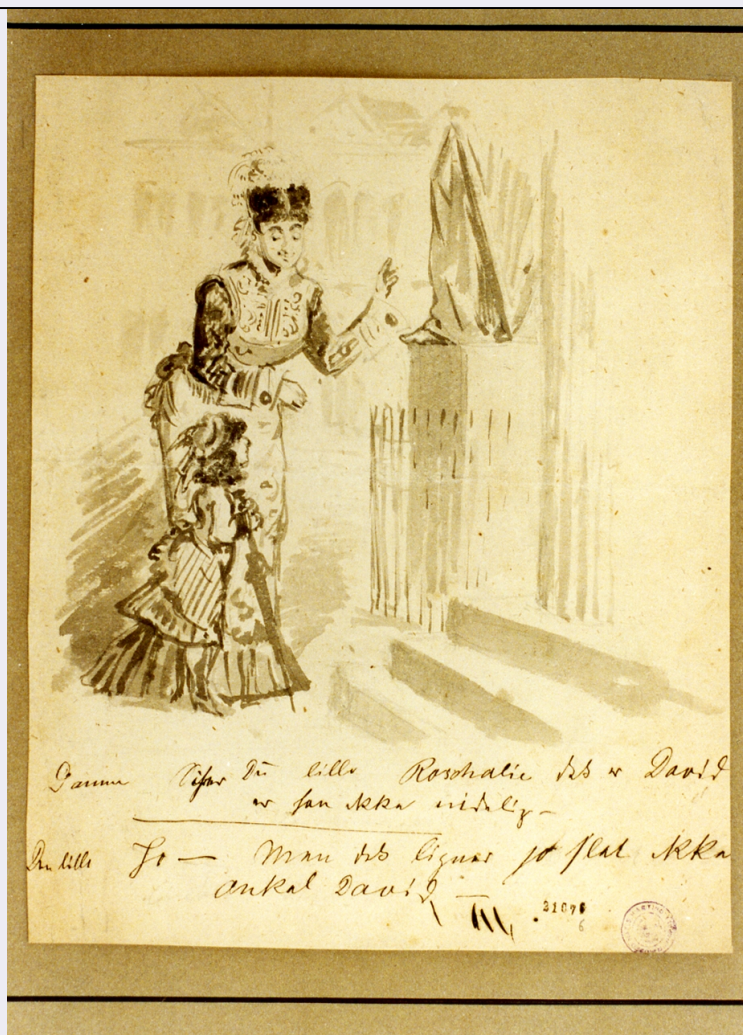 Damen Siher Du lille Roschalie det er David
er han ikke nidelig -
Den lille Jo — Men det ligner jo slet ikke
onkel David
31076
6